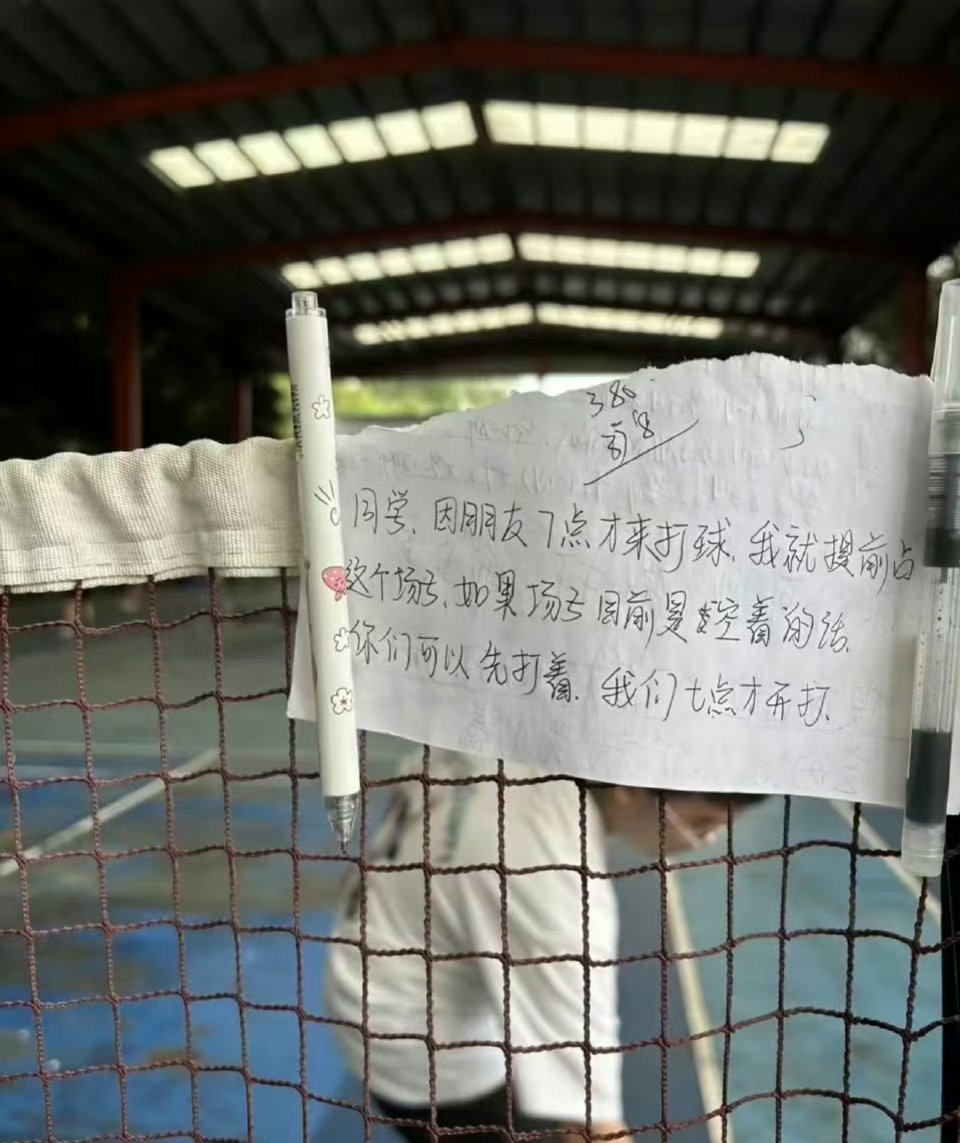 380
同学、因朋友7点才来打球、我就提前占
这个场子、如果场子目前是空着的话、
你们可以先打着、我们七点才开打、